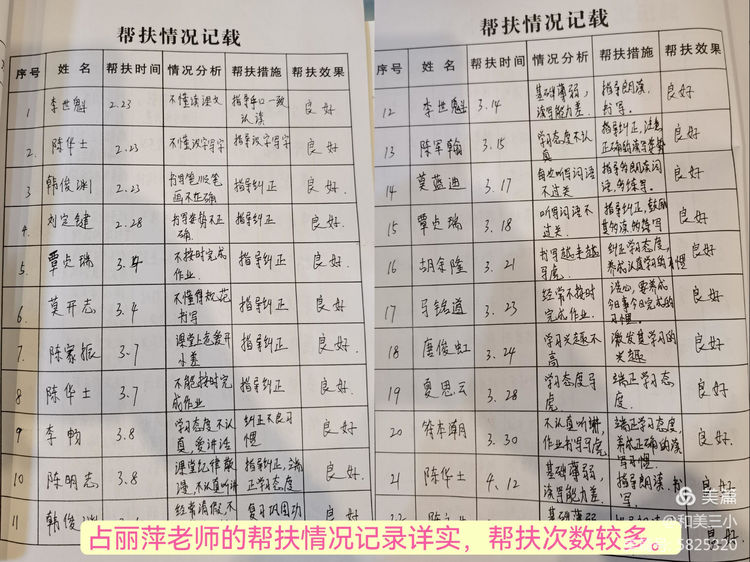 帮扶情况记载
序号 姓名 帮扶时间 情况分析 帮扶措施 帮扶效果
1 李世魁 2.23 不懂读课文 指导 口一致认读 良好
2. 陈华士 2.23 不懂汉字写字 指导汉字写字 良好.
3 韩俊渊 2.23 书写笔顺笔画不正确 指导纠正 良好.
4. 刘定键 2.28 书写姿势不正确. 指导纠正 良好.
5. 覃贞瑞 3.4 不按时完成作业. 指导纠正 良好.
6. 莫开志 3.4 不懂得规范书写 指导纠正 良好.
7. 陈家振 3.7 课堂上爱开小差 指导纠正 良好.
8 陈华士 3.7 不能按时完成作业 指导纠正 良好.
9 李畅 3.8 学习态度不认真,爱讲话 纠正不良习惯 良好.
10 陈明志 3.8 课堂纪律散漫,不认真听讲 指导纠正,端正学习态度 良好.
11 韩俊渊 经常请假,不 复习巩固功
帮扶情况记载
序号 姓名 帮扶时间 情况分析 帮扶措施 帮扶效果
12 李世魁 3.14 基础薄弱,读写能力差. 指导朗读.书写. 良好
13 陈军翰 3.15 学习态度不认真 指导纠正,注意正确的读写姿势 良好
14 莫蓝迪 3.17 每次听写词语不过关 指导多朗读词语,多练写. 良好.
15 覃贞瑞 3.18 听写词语不过关. 指导纠正,鼓励其多读多练写 良好
16 胡余隆 3.21 书写越来越马虎. 纠正学习态度,养成认真学习的习惯 良好
17 马铭道 3.23 经常不按时完成作业. 谈心,要养成今日事今日完成的习惯. 良好
18 唐俊虹 3.24 学习兴趣不高 激发其学习的兴趣 良好
19 夏思云 3.28 学习态度马虎 端正学习态度. 良好
20 本湖月 3.30 不认真听讲,作业书写马虎 端正学习态度,养成正确的读写习惯. 良好
21 陈华士 4.12 基础薄弱,读写能力差. 指导朗读.书写 良好
良好.
占丽萍老师的帮扶情况记录详实，帮扶次数较多。
美篇
@和美三小
5825320